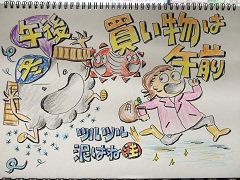 午後
買い物は
午前
ツルツル
泥はね注